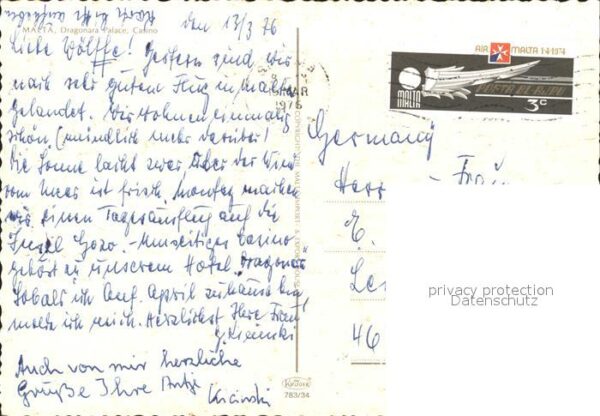 den 13/3 76
MALTA, Dragonara Palace, Casino
Liebe Wölffe! Gestern sind wir
nach sehr gutem Flug in Malta
gelandet. Wir wohnen einmalig
schön. (mündlich mehr darüber!
Die Sonne lacht zwar, aber der Wind
vom Meer ist frisch. Montag machen
wir einen Tagesausflug auf die
Insel Gozo. - Umseitiges Casino
gehört zu unserem Hotel Dragonara
Sobald ich Anf. April zuhause bin,
melde ich mich. Herzlichst Ihre Frau
Auch von mir herzliche
Grüße Ihre Antje
MAR
1976
AIR MALTA 1·4·1974
MALTA
3c
Germany
Herr - Frau
46
privacy protection
Datenschutz
783/34